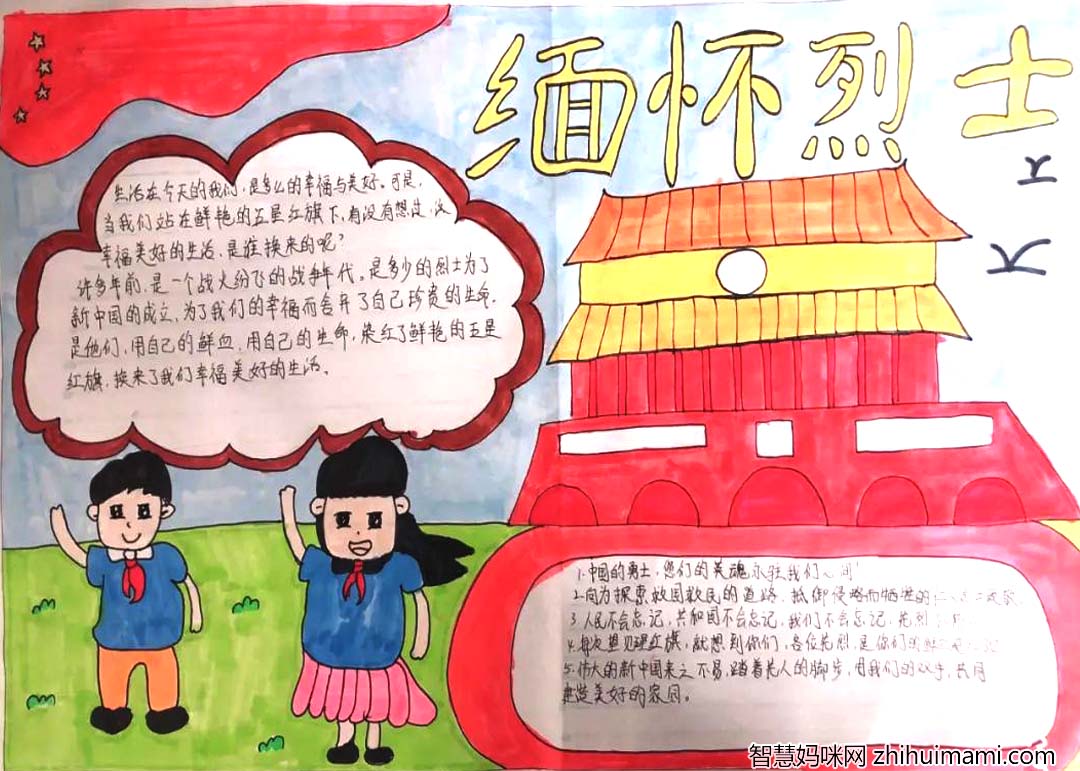 缅怀烈士
生活在今天的我们,是多么的幸福与美好。可是,
当我们站在鲜艳的五星红旗下,有没有想过,这
幸福美好的生活,是谁换来的呢?
许多年前,是一个战火纷飞的战争年代。是多少的烈士为了
新中国的成立,为了我们的幸福而舍弃了自己珍贵的生命。
是他们,用自己的鲜血,用自己的生命,染红了鲜艳的五星
红旗,换来了我们幸福美好的生活。
1.中国的勇士,您们的英魂永驻我们心间!
2.向为探索救国救民的道路、抵御侵略而牺牲的仁人
3.人民不会忘记,共和国不会忘记,我们不会忘记,先烈
4.每次望见红旗,就想到你们,各位先烈,是你们的鲜
5.伟大的新中国来之不易,踏着先人的脚步,用我们的双手,共同
建造美好的家园。
智慧妈咪网 zhihuimami.com